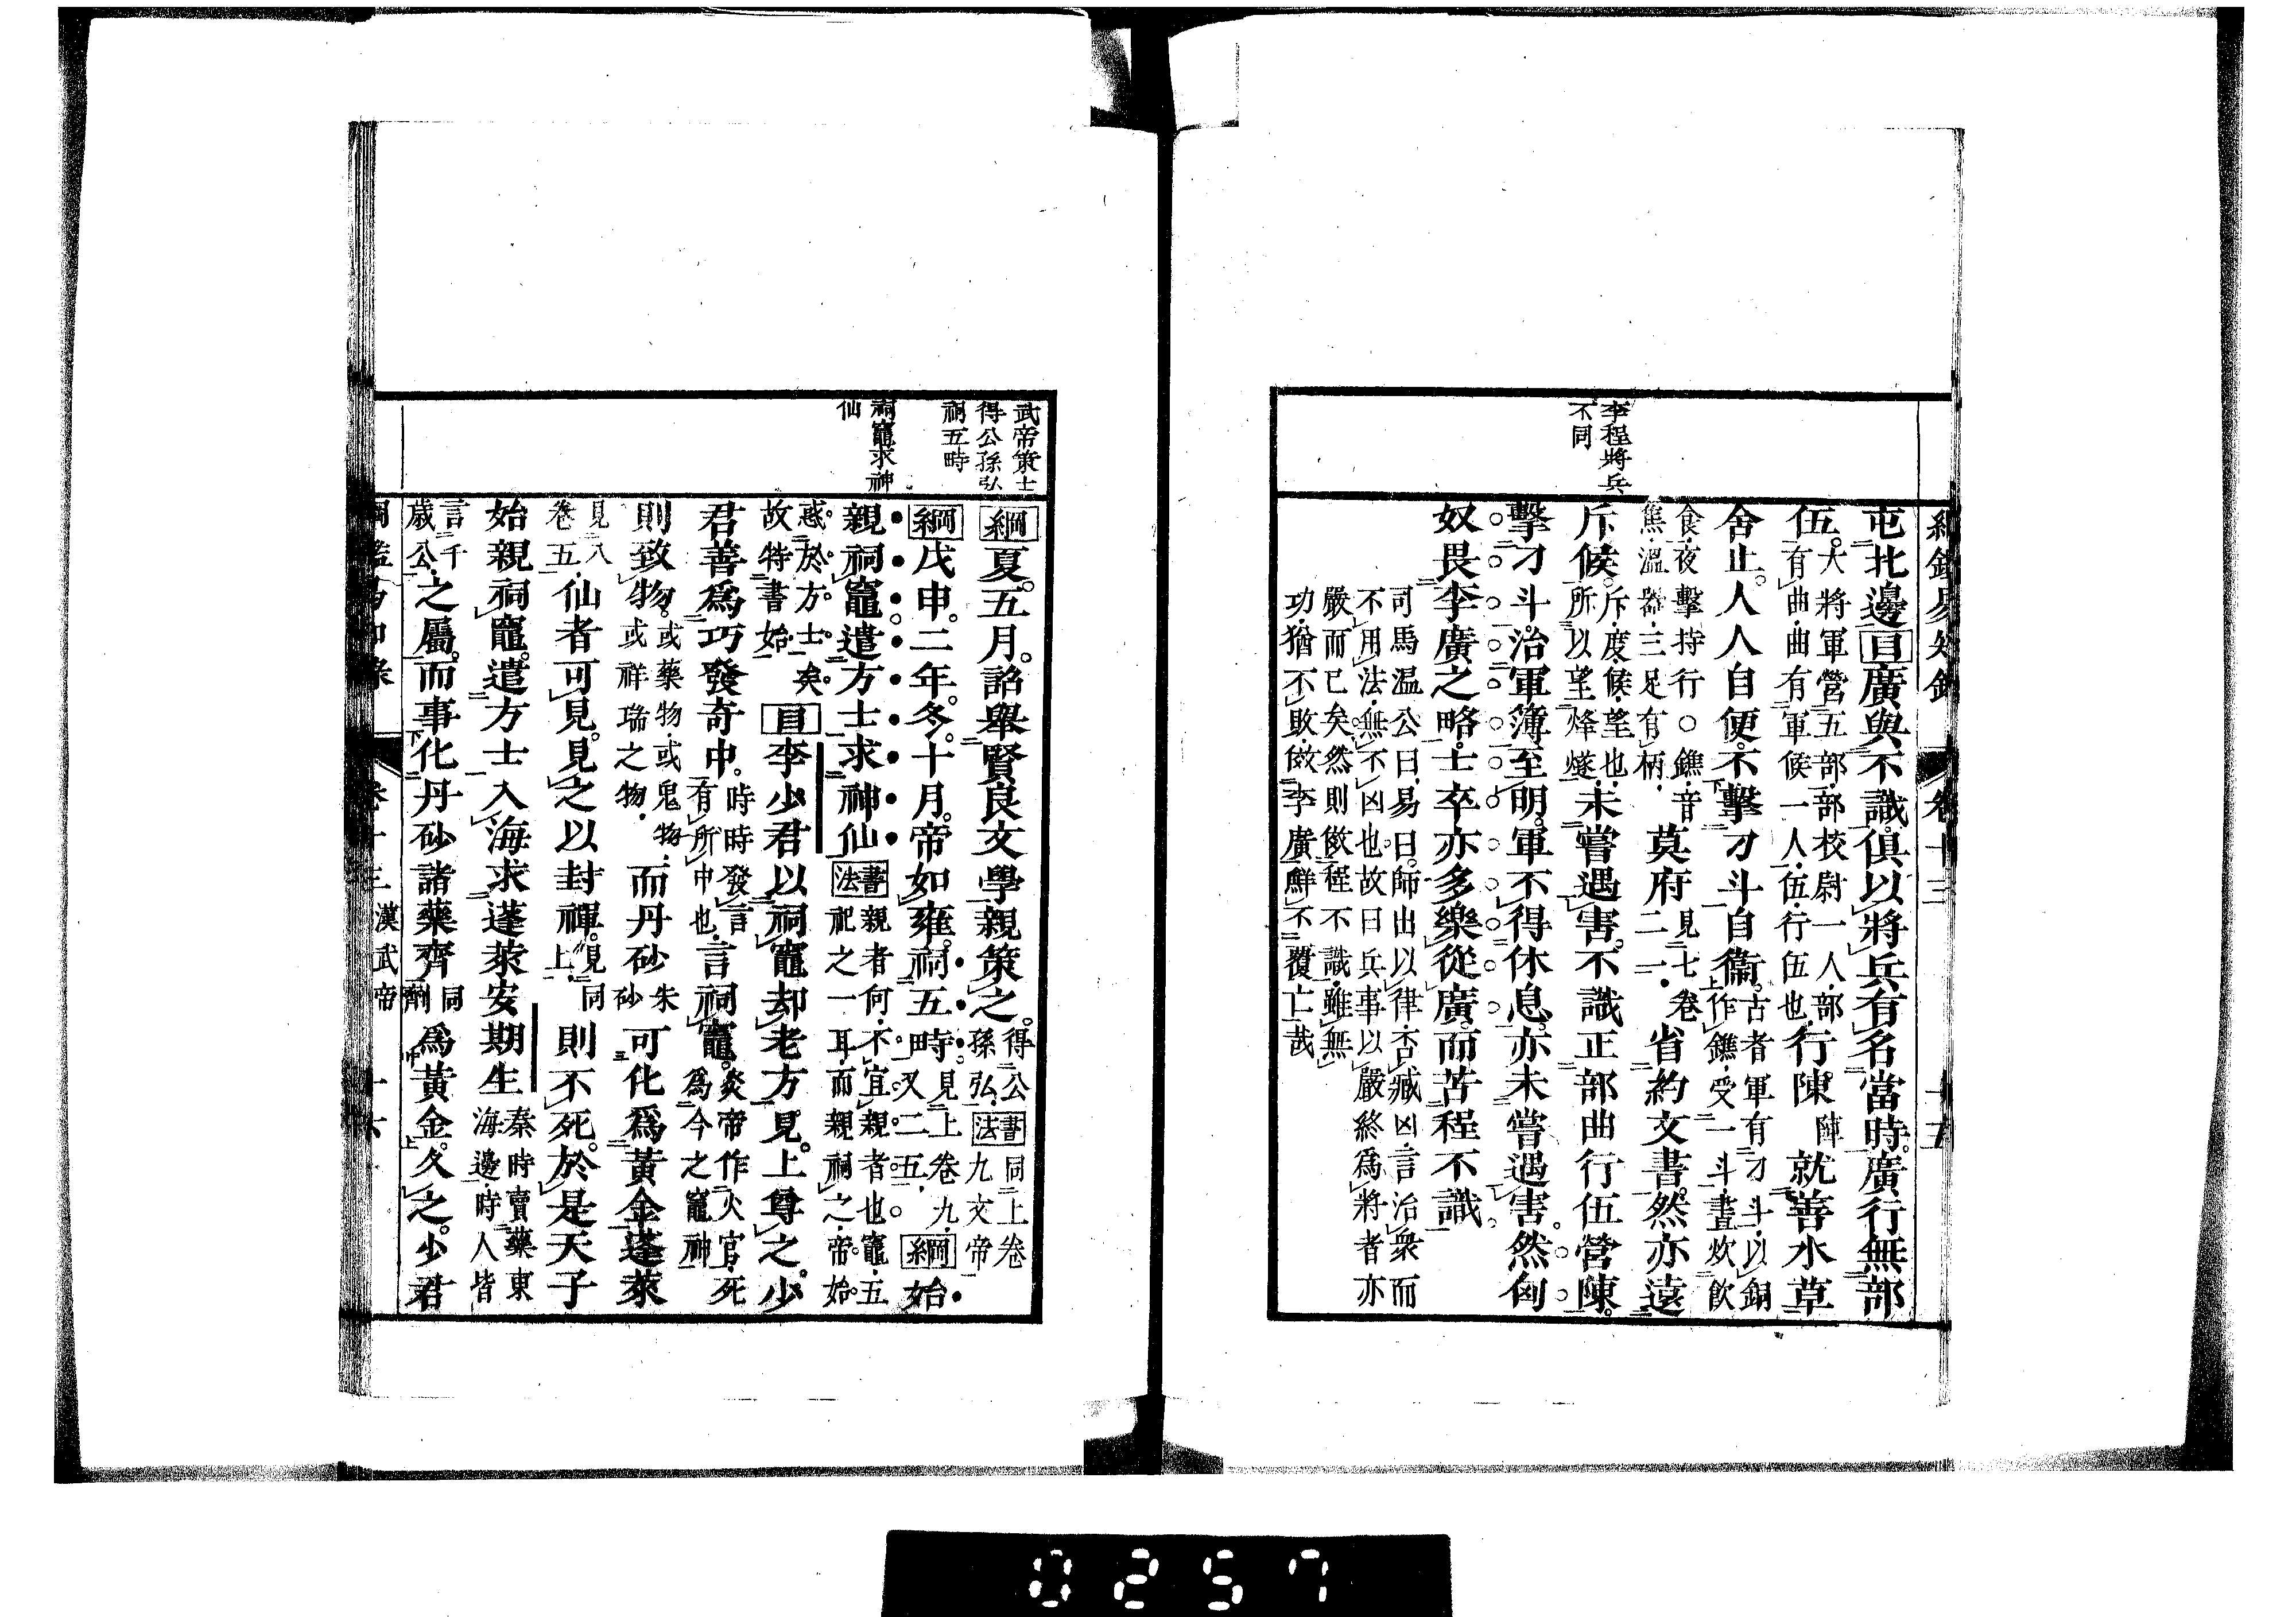 綱鑑易知錄 卷十三 十五
李程將兵
不同
屯北邊目廣與不識俱以將兵有名當時廣行無部
伍大將軍營五部部校尉一人部有曲曲有軍候一人伍行伍也行陳陣就善水草
舍止人人自便不擊刁斗自衞古者軍有刁斗以銅作鐎受一斗晝炊飲
食夜擊持行○鐎音焦溫器三足有柄莫府見七卷二一省約文書然亦遠
斥候斥度候望也所以望烽燧未嘗遇害不識正部曲行伍營陳
擊刁斗治軍簿至明軍不得休息亦未嘗遇害然匈
奴畏李廣之略士卒亦多樂從廣而苦程不識
司馬温公曰易曰師出以律否臧凶言治衆而
不用法無不凶也故曰兵事以嚴終爲將者亦
嚴而已矣然則傚程不識雖無
功猶不敗傚李廣鮮不覆亡哉
武帝策士
得公孫弘
祠五畤
祠竈求神
仙
綱夏五月詔舉賢良文學親策之得公孫弘書法同上卷九文帝
綱戊申二年冬十月帝如雍祠五畤見上卷九又二五綱始
親祠竈遣方士求神仙書法親者何不宜親者也竈五祀之一耳而親祠之帝始
惑於方士矣故特書始目李少君以祠竈却老方見上尊之少
君善爲巧發奇中時時發言有所中也言祠竈炎帝作火官死爲今之竈神
則致物或藥物或鬼物或祥瑞之物而丹砂朱砂可化爲黃金蓬萊
見八卷五仙者可見見之以封禪見同上則不死於是天子
始親祠竈遣方士入海求蓬萊安期生秦時賣藥東海邊時人皆
言千歲公之屬而事化丹砂諸藥齊同劑爲黃金久之少君
綱鑑易知錄 卷十三 漢武帝 十六